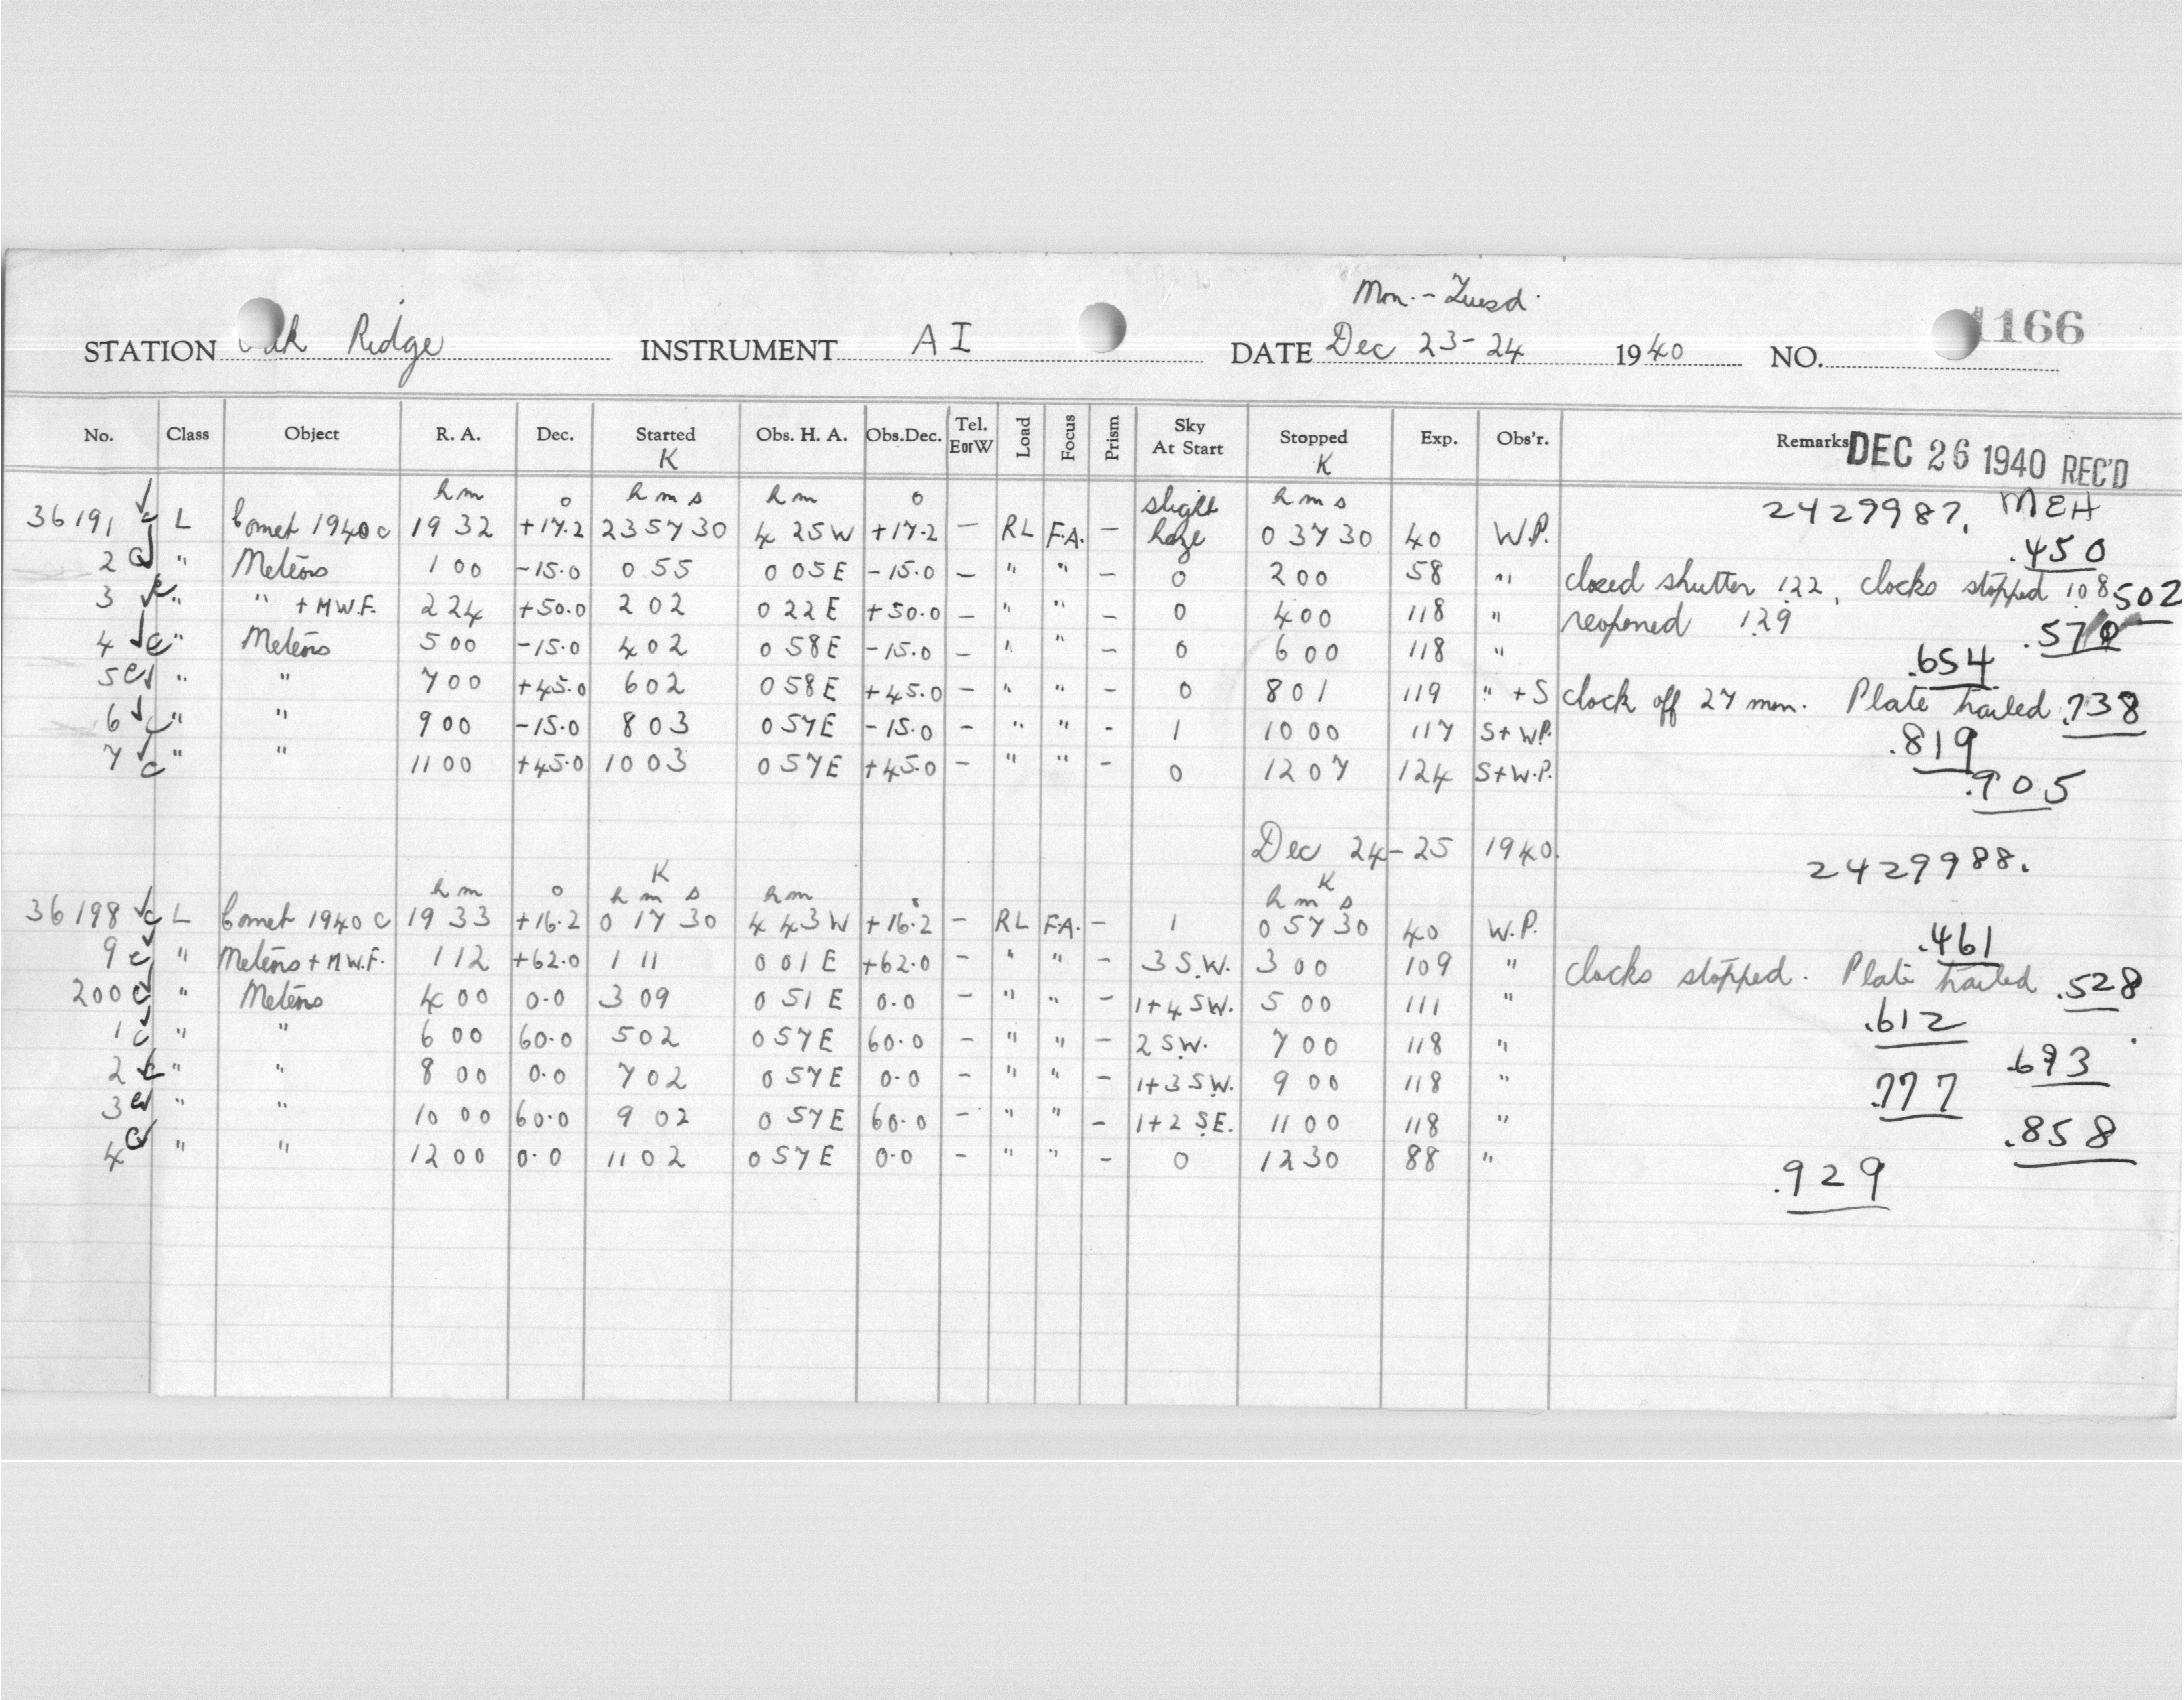 Mon.-Tuesd.
STATION Oak Ridge INSTRUMENT AI DATE Dec 23-24 1940 NO. 1166
No. Class Object R. A. Dec. Started Obs. H. A. Obs.Dec. Tel. EorW Load Focus Prism Sky At Start Stopped Exp. Obs'r. Remarks DEC 26 1940 REC'D
K K
h m o h m s h m o slight h m s 2429987. MEH
36191 c L Comet 1940c 19 32 +17.2 23 57 30 4 25W +17.2 — RL F.A. — haze 0 37 30 40 W.P. .450
2 c " Meteors 1 00 -15.0 0 55 0 05E -15.0 — " " — 0 2 00 58 " closed shutter 1 22, clocks stopped 1 08 .502
3 c " " + M W.F. 2 24 +50.0 2 02 0 22E +50.0 — " " — 0 4 00 118 " reopened 1 29 .570
4 c " Meteors 5 00 -15.0 4 02 0 58E -15.0 — " " — 0 6 00 118 " .654
5 c " " 7 00 +45.0 6 02 0 58E +45.0 — " " — 0 8 01 119 " + S clock off 27 min. Plate trailed .738
6 c " " 9 00 -15.0 8 03 0 57E -15.0 — " " - 1 10 00 117 S+W.P. .819
7 c " " 11 00 +45.0 10 03 0 57E +45.0 — " " — 0 12 07 124 S+W.P. .905
Dec 24-25 1940. 2429988.
K K
h m o h m s h m o h m s
36198 c L Comet 1940c 19 33 +16.2 0 17 30 4 43W +16.2 — RL F.A. — 1 0 57 30 40 W.P. .461
9 c " Meteors + M W.F. 1 12 +62.0 1 11 0 01E +62.0 — " " — 3 S.W. 3 00 109 " clocks stopped. Plate trailed .528
200 c " Meteors 4 00 0.0 3 09 0 51E 0.0 — " " — 1+4 SW. 5 00 111 " .612
1 c " " 6 00 60.0 5 02 0 57E 60.0 — " " — 2 S.W. 7 00 118 " .693
2 c " " 8 00 0.0 7 02 0 57E 0.0 — " " — 1+3 SW. 9 00 118 " .777
3 c " " 10 00 60.0 9 02 0 57E 60.0 — " " — 1+2 S.E. 11 00 118 " .858
4 c " " 12 00 0.0 11 02 0 57E 0.0 — " " — 0 12 30 88 " .929